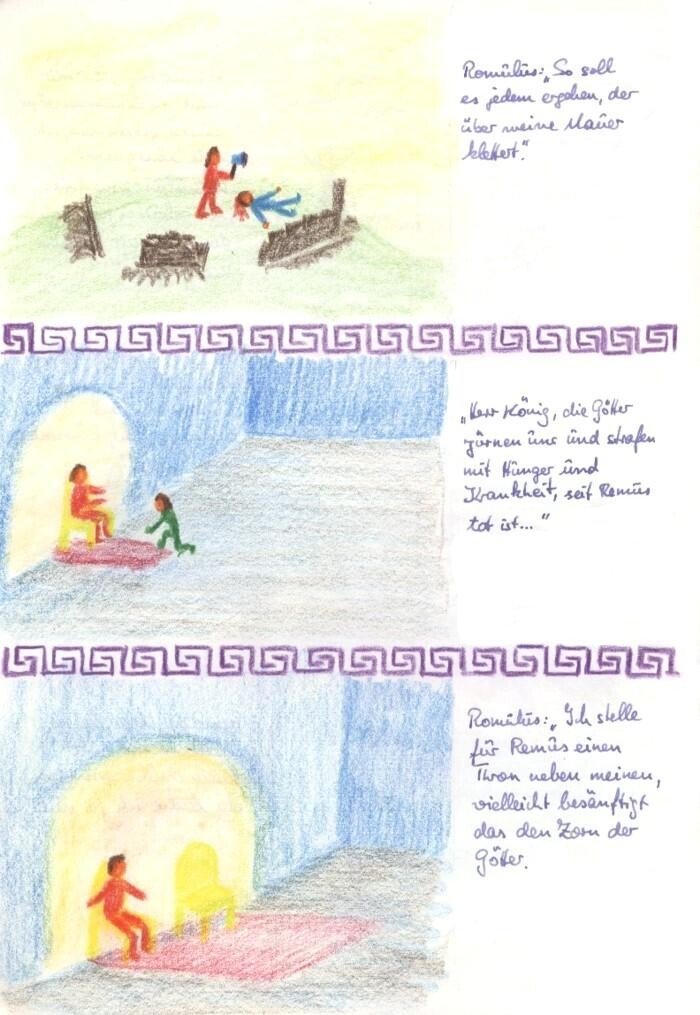 Romulus: „So soll
es jedem ergehen, der
über meine Mauer
klettert."
„Herr König, die Götter
zürnen uns und strafen
mit Hunger und
Krankheit, seit Remus
tot ist..."
Romulus: „Ich stelle
für Remus einen
Tron neben meinen,
vielleicht besänftigt
das den Zorn der
Götter.